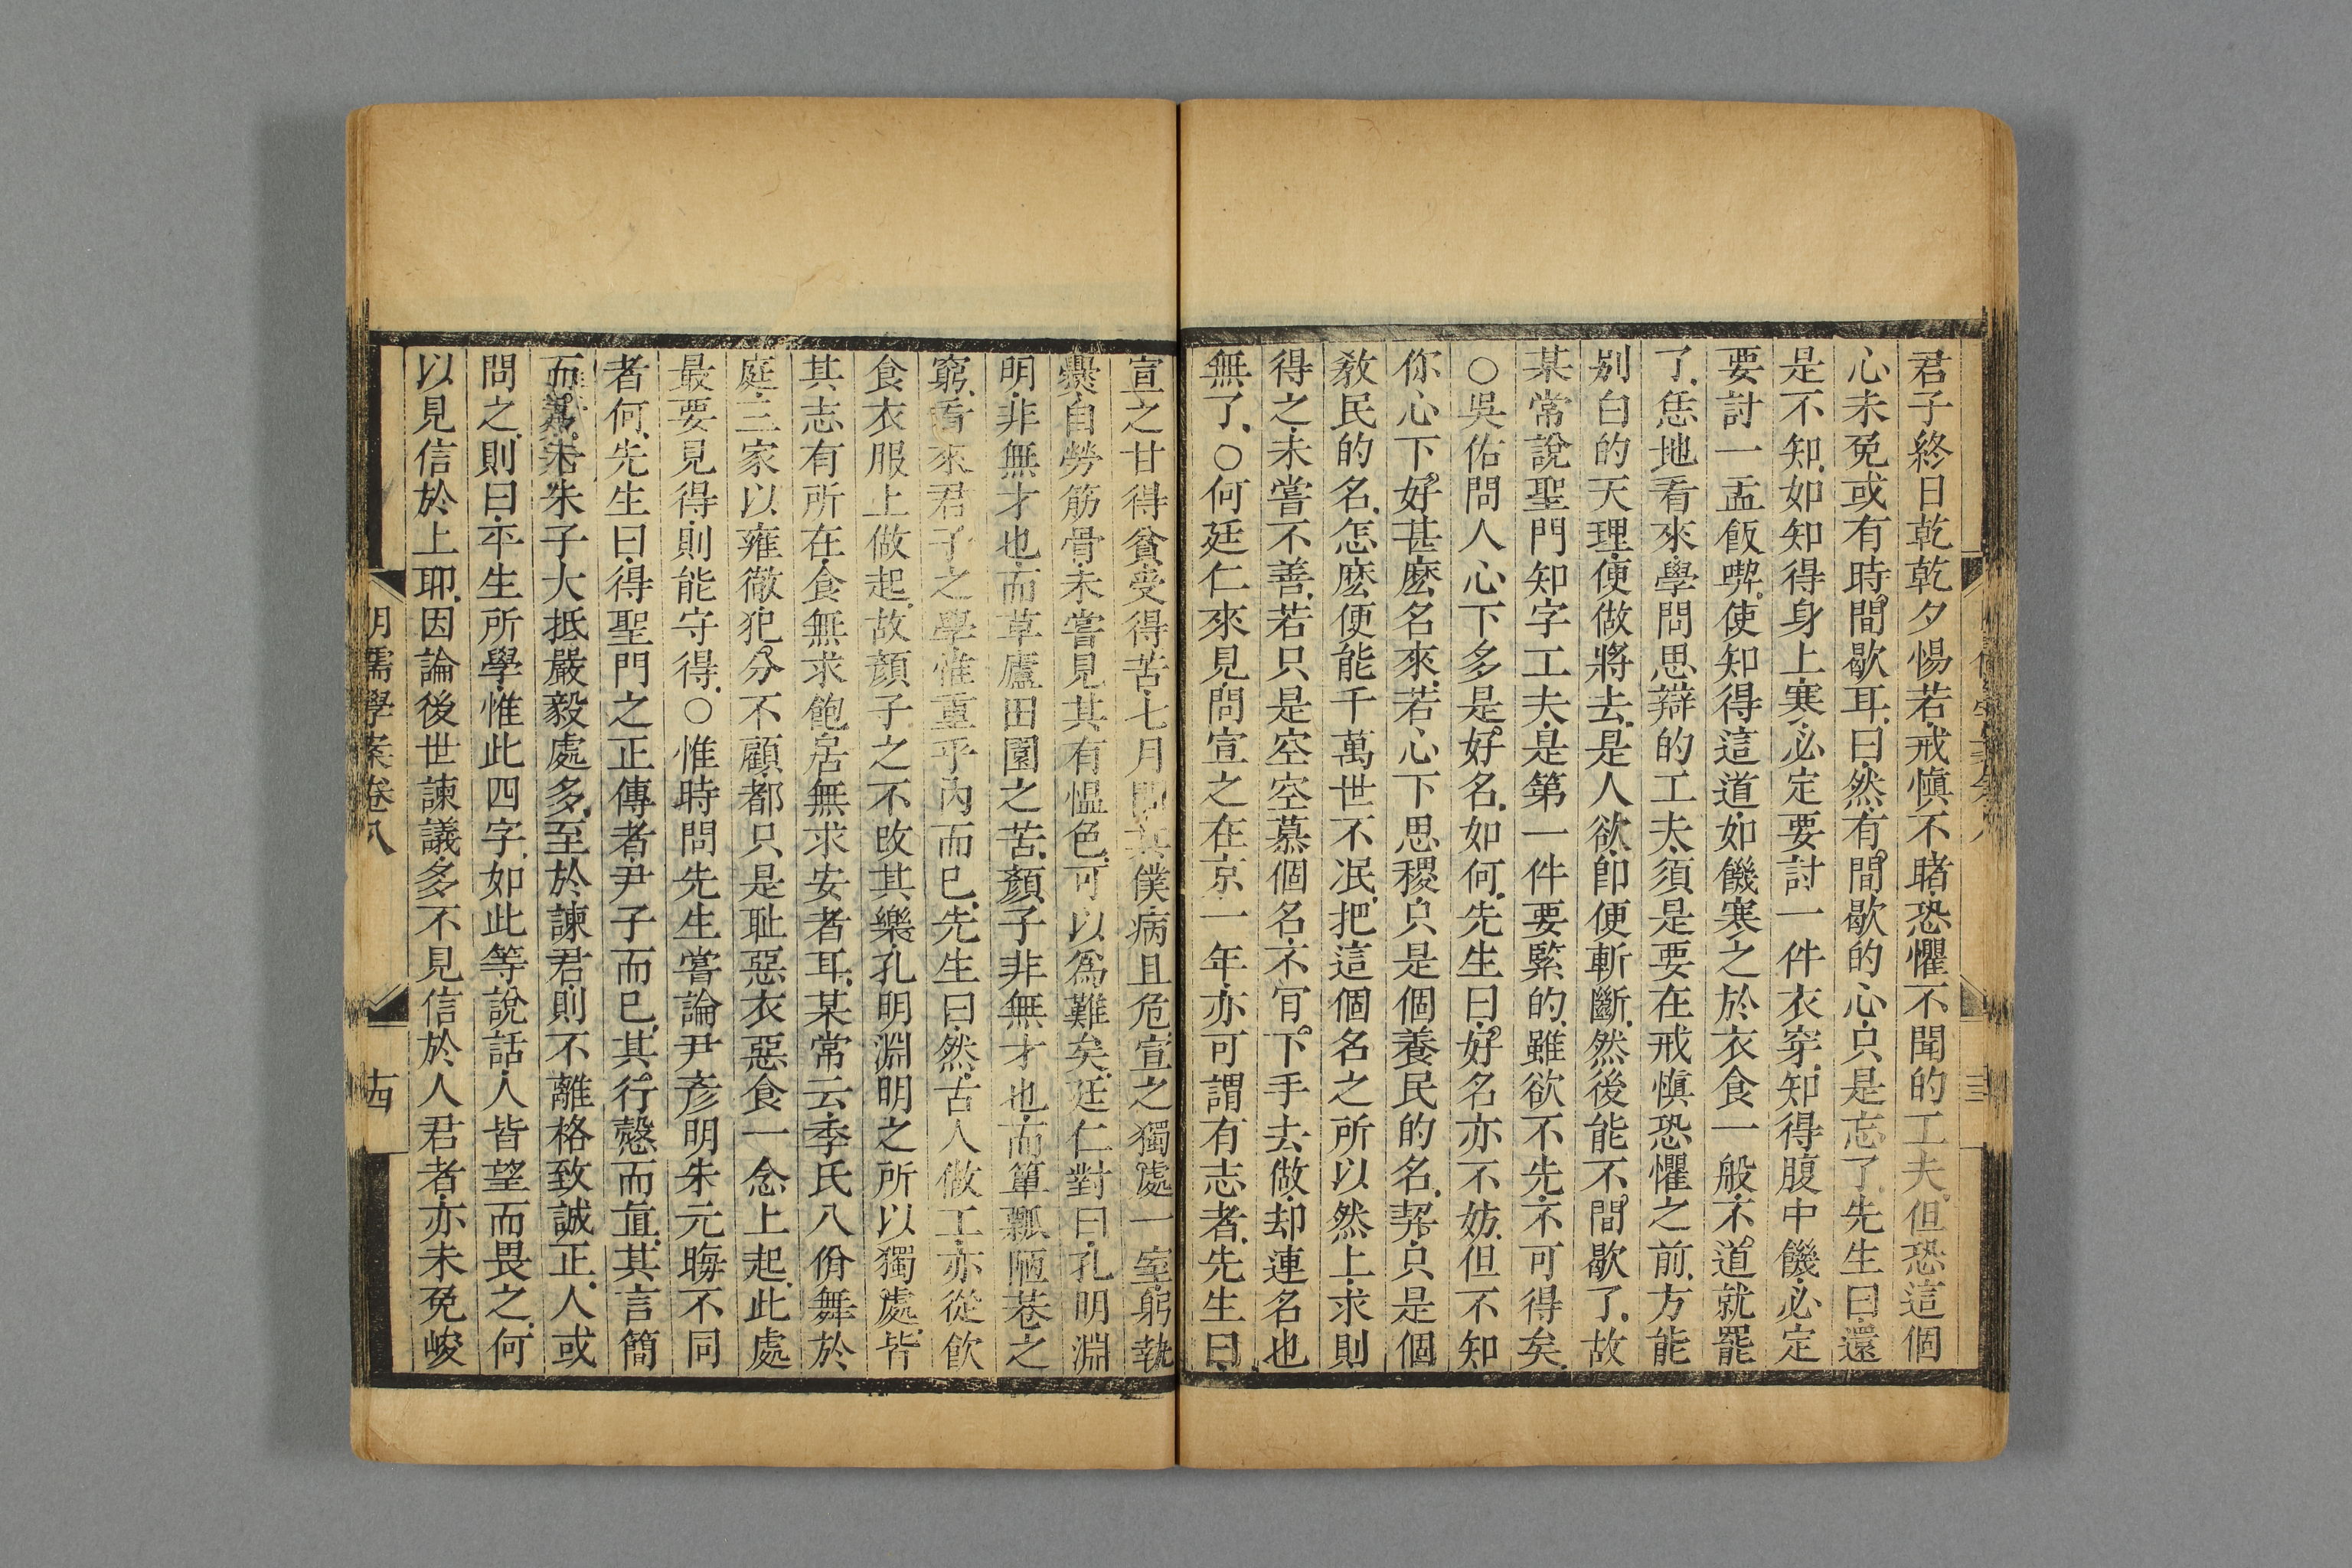 君子終日乾乾夕惕若戒愼不睹恐懼不聞的工夫但恐這個
心未免或有時間歇耳曰然有間歇的心只是忘了先生曰還
是不知如知得身上寒必定要討一件衣穿知得腹中饑必定
要討一盂飯喫使知得這道如饑寒之於衣食一般不道就罷
了恁地看來學問思辯的工夫須是要在戒愼恐懼之前方能
別白的天理便做將去是人欲卽便斬斷然後能不間歇了故
某常說聖門知字工夫是第一件要緊的雖欲不先不可得矣
○吳佑問人心下多是好名如何先生曰好名亦不妨但不知
你心下好甚麽名來若心下思稷只是個養民的名契只是個
敎民的名怎麽便能千萬世不冺把這個名之所以然上求則
得之未嘗不善若只是空空慕個名不肎下手去做却連名也
無了○何廷仁來見問宣之在京一年亦可謂有志者先生曰
宣之甘得貧受得苦七月間其僕病且危宣之獨處一室躬執
爨自勞筋骨未嘗見其有慍色可以爲難矣廷仁對曰孔明淵
明非無才也而草廬田園之苦顏子非無才也而簞瓢陋巷之
窮看來君子之學惟重乎內而已先生曰然古人做工亦從飮
食衣服上做起故顏子之不改其樂孔明淵明之所以獨處皆
其志有所在食無求飽居無求安者耳某常云季氏八佾舞於
庭三家以雍徹犯分不顧都只是耻惡衣惡食一念上起此處
最要見得則能守得○惟時問先生嘗論尹彥明朱元晦不同
者何先生曰得聖門之正傳者尹子而已其行慤而直其言簡
而朱子大抵嚴毅處多至於諫君則不離格致誠正人或
問之則曰平生所學惟此四字如此等說話人皆望而畏之何
以見信於上耶因論後世諫議多不見信於人君者亦未免峻
明儒學案卷八
十四